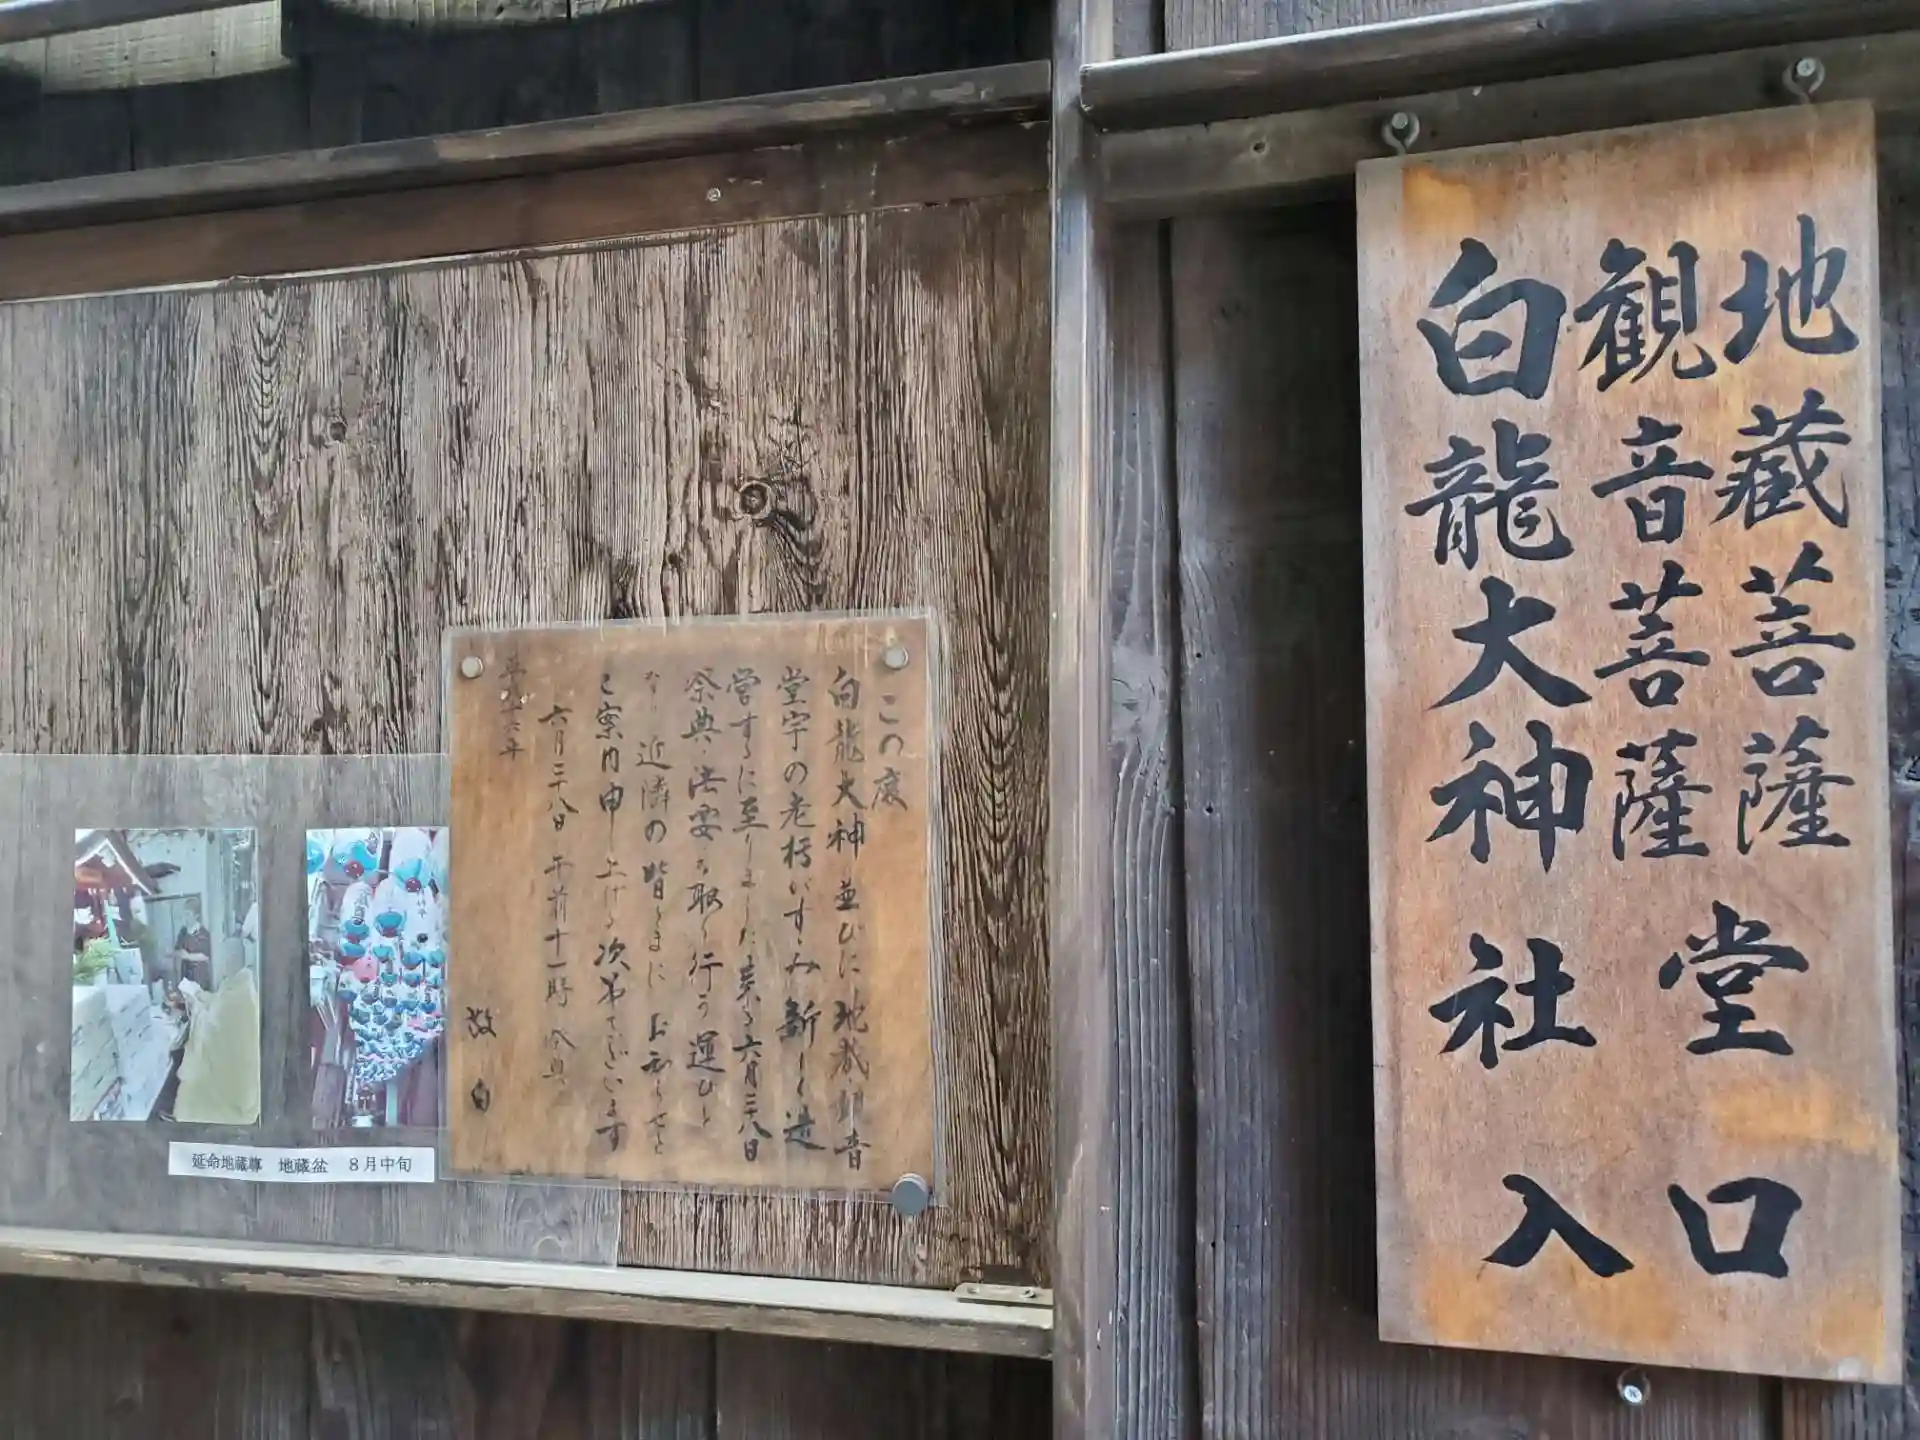 地蔵菩薩
観音菩薩 堂
白龍大神社
入口
この度
白龍大神並びに地蔵・観音
堂宇の老朽がすゝみ新しく造
営するに至りました来る六月二十八日
祭典・法要を取り行う運びと
なり近隣の皆さまにお知らせと
ご案内申し上げる次第でございます
六月二十八日 午前十一時 祭典
平成十六年
敬白
延命地蔵尊 地蔵盆 8月中旬